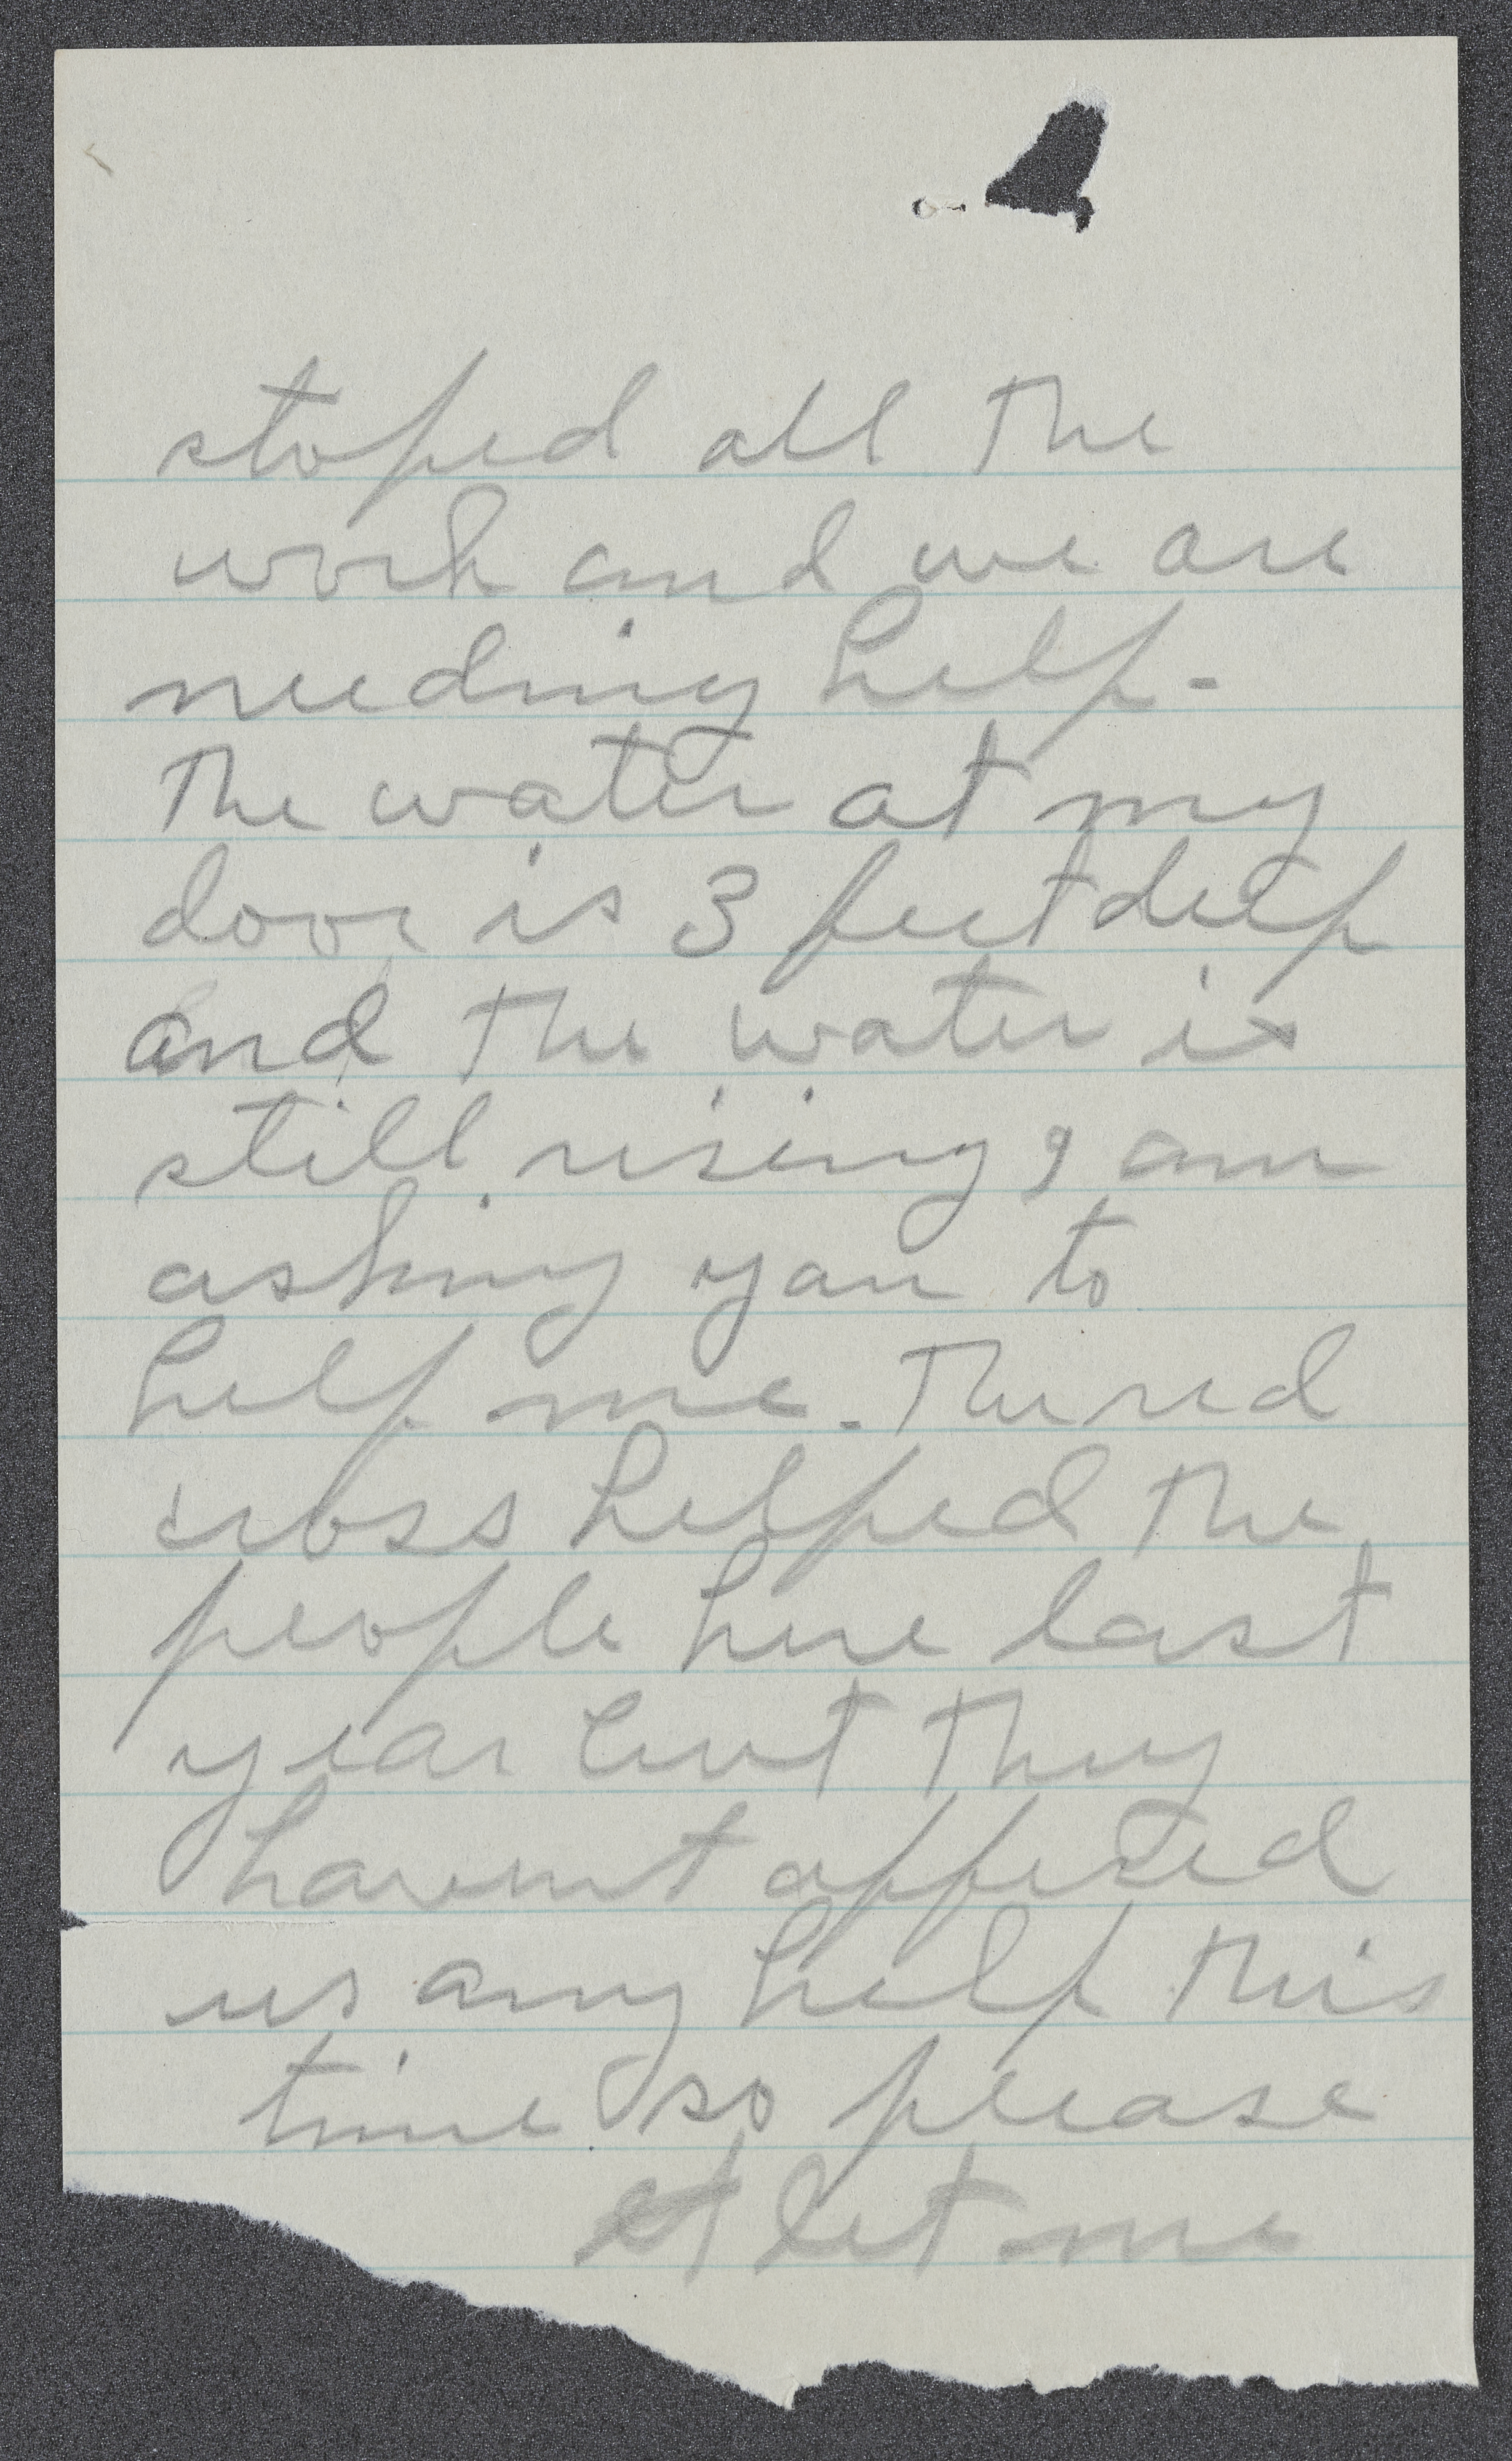 stoped all the
work and we are
needing help.
The water at my
door is 3 feet deep
and the water is
still rising I am
asking you to
help me. The red
cross helped the
people here last
year but they
havent offered
us any help this
time so please
let me